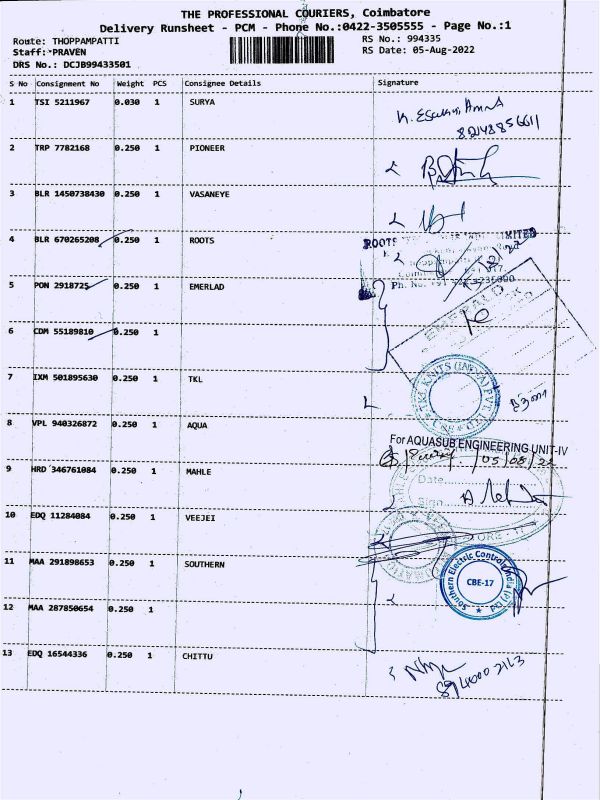 THE PROFESSIONAL COURIERS, Coimbatore
Delivery Runsheet - PCM - Phone No.:0422-3505555 - Page No.:1
Route: THOPPAMPATTI
RS No.: 994335
Staff: PRAVEN
RS Date: 05-Aug-2022
DRS No.: DCJB99433501
S No Consignment No Weight PCS Consignee Details Signature
1 TSI 5211967 0.030 1 SURYA
2 TRP 7782168 0.250 1 PIONEER
3 BLR 1450738430 0.250 1 VASANEYE
4 BLR 670265208 0.250 1 ROOTS
ROOTS
MITED
5 PON 2918725 0.250 1 EMERLAD
Ph. No.
EMERALD
6 CDM 55189810 0.250 1
7 IXM 501895630 0.250 1 TKL
TKL KNITS (INDIA) PVT LTD
8 VPL 940326872 0.250 1 AQUA
For AQUASUB ENGINEERING UNIT-IV
05/08/22
9 HRD 346761084 0.250 1 MAHLE
Date
Sign
10 EDQ 11284084 0.250 1 VEEJEI
11 MAA 291898653 0.250 1 SOUTHERN
Southern Electric Control India (P) Ltd
CBE-17
12 MAA 287850654 0.250 1
13 EDQ 16544336 0.250 1 CHITTU